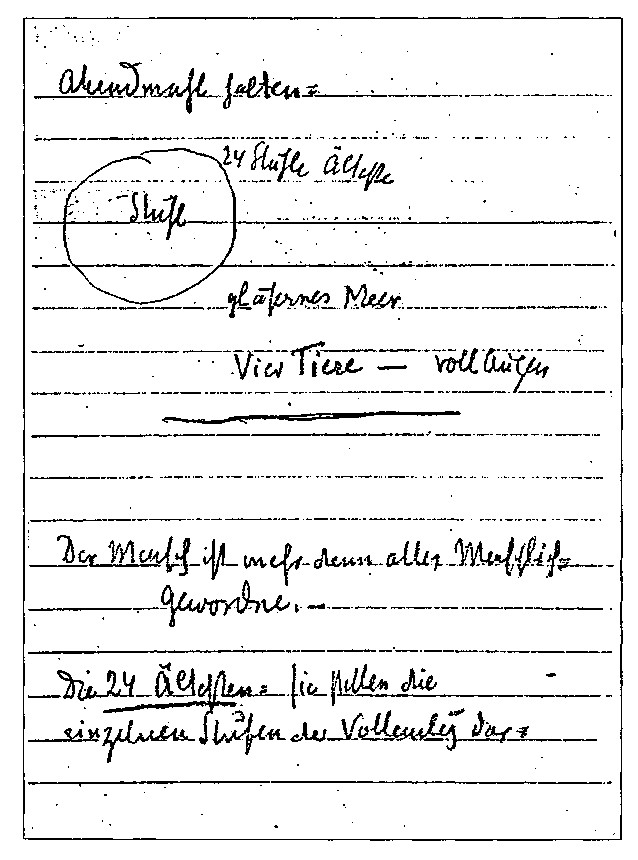 Abendmahl halten=
24 Stühle Älteste
Stuhl
gläsernes Meer
Vier Tiere — voll Augen
Der Mensch ist mehr denn alles Menschlich=
Gewordne. –
Die 24 Ältesten= sie stellen die
einzelnen Stufen der dar=